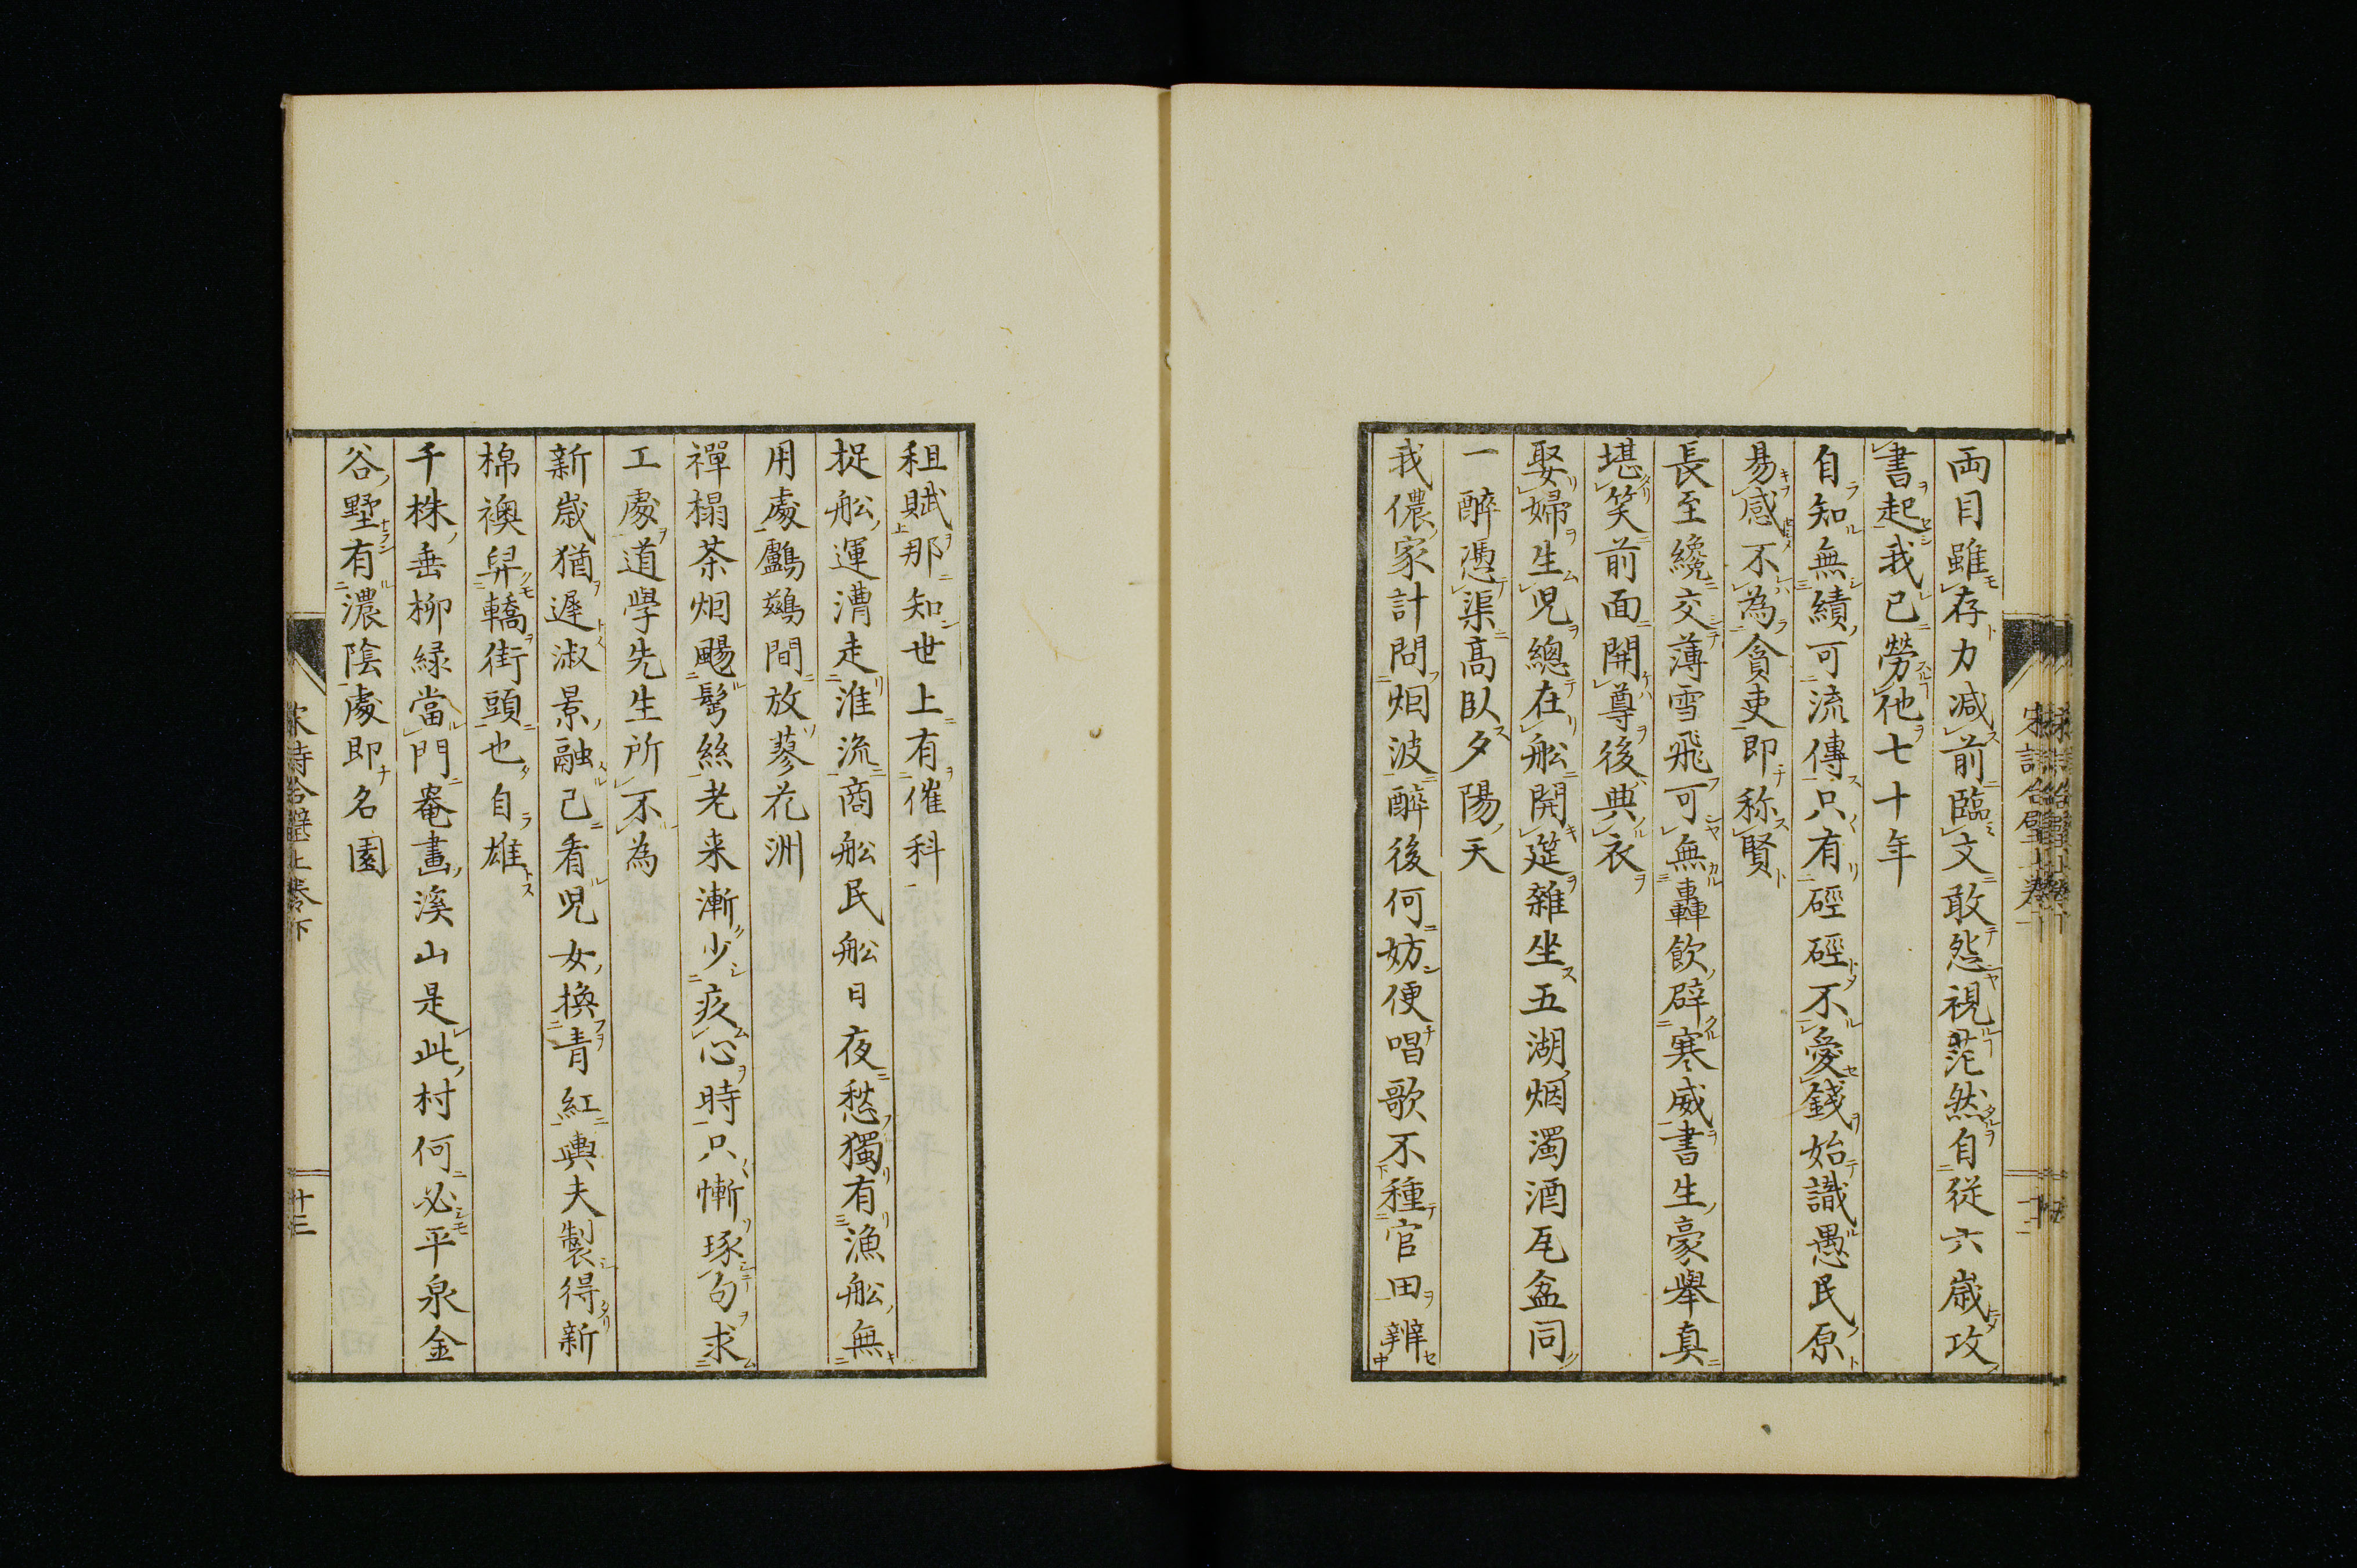 両目雖存力減前臨文敢怨視茫然自従六歳攻
書起我已勞他七十年
自知無績可流傳只有硜硜不愛錢始識愚民原
易感不為貪吏即称賢
長至纔交薄雪飛可無轟飲辟寒威書生豪舉真
堪笑前面開尊後典衣
娶婦生児總在舩開筵雜坐五湖烟濁酒瓦盆同
一醉憑渠高臥夕陽天
我儂家計問烟波醉後何妨便唱歌不種官田辨
租賦那知世上有催科
捉舩運漕走淮流商舩民舩日夜愁獨有漁舩無
用處鸕鷀間放蓼花洲
禪榻茶烟颺鬢絲老来漸少疚心時只慚琢句求
工處道學先生所不為
新歳猶遲淑景融已看児女換青紅輿夫製得新
棉襖舁轎街頭也自雄
千株垂柳緑當門罨畫溪山是此村何必平泉金
谷墅有濃陰處即名園
十三